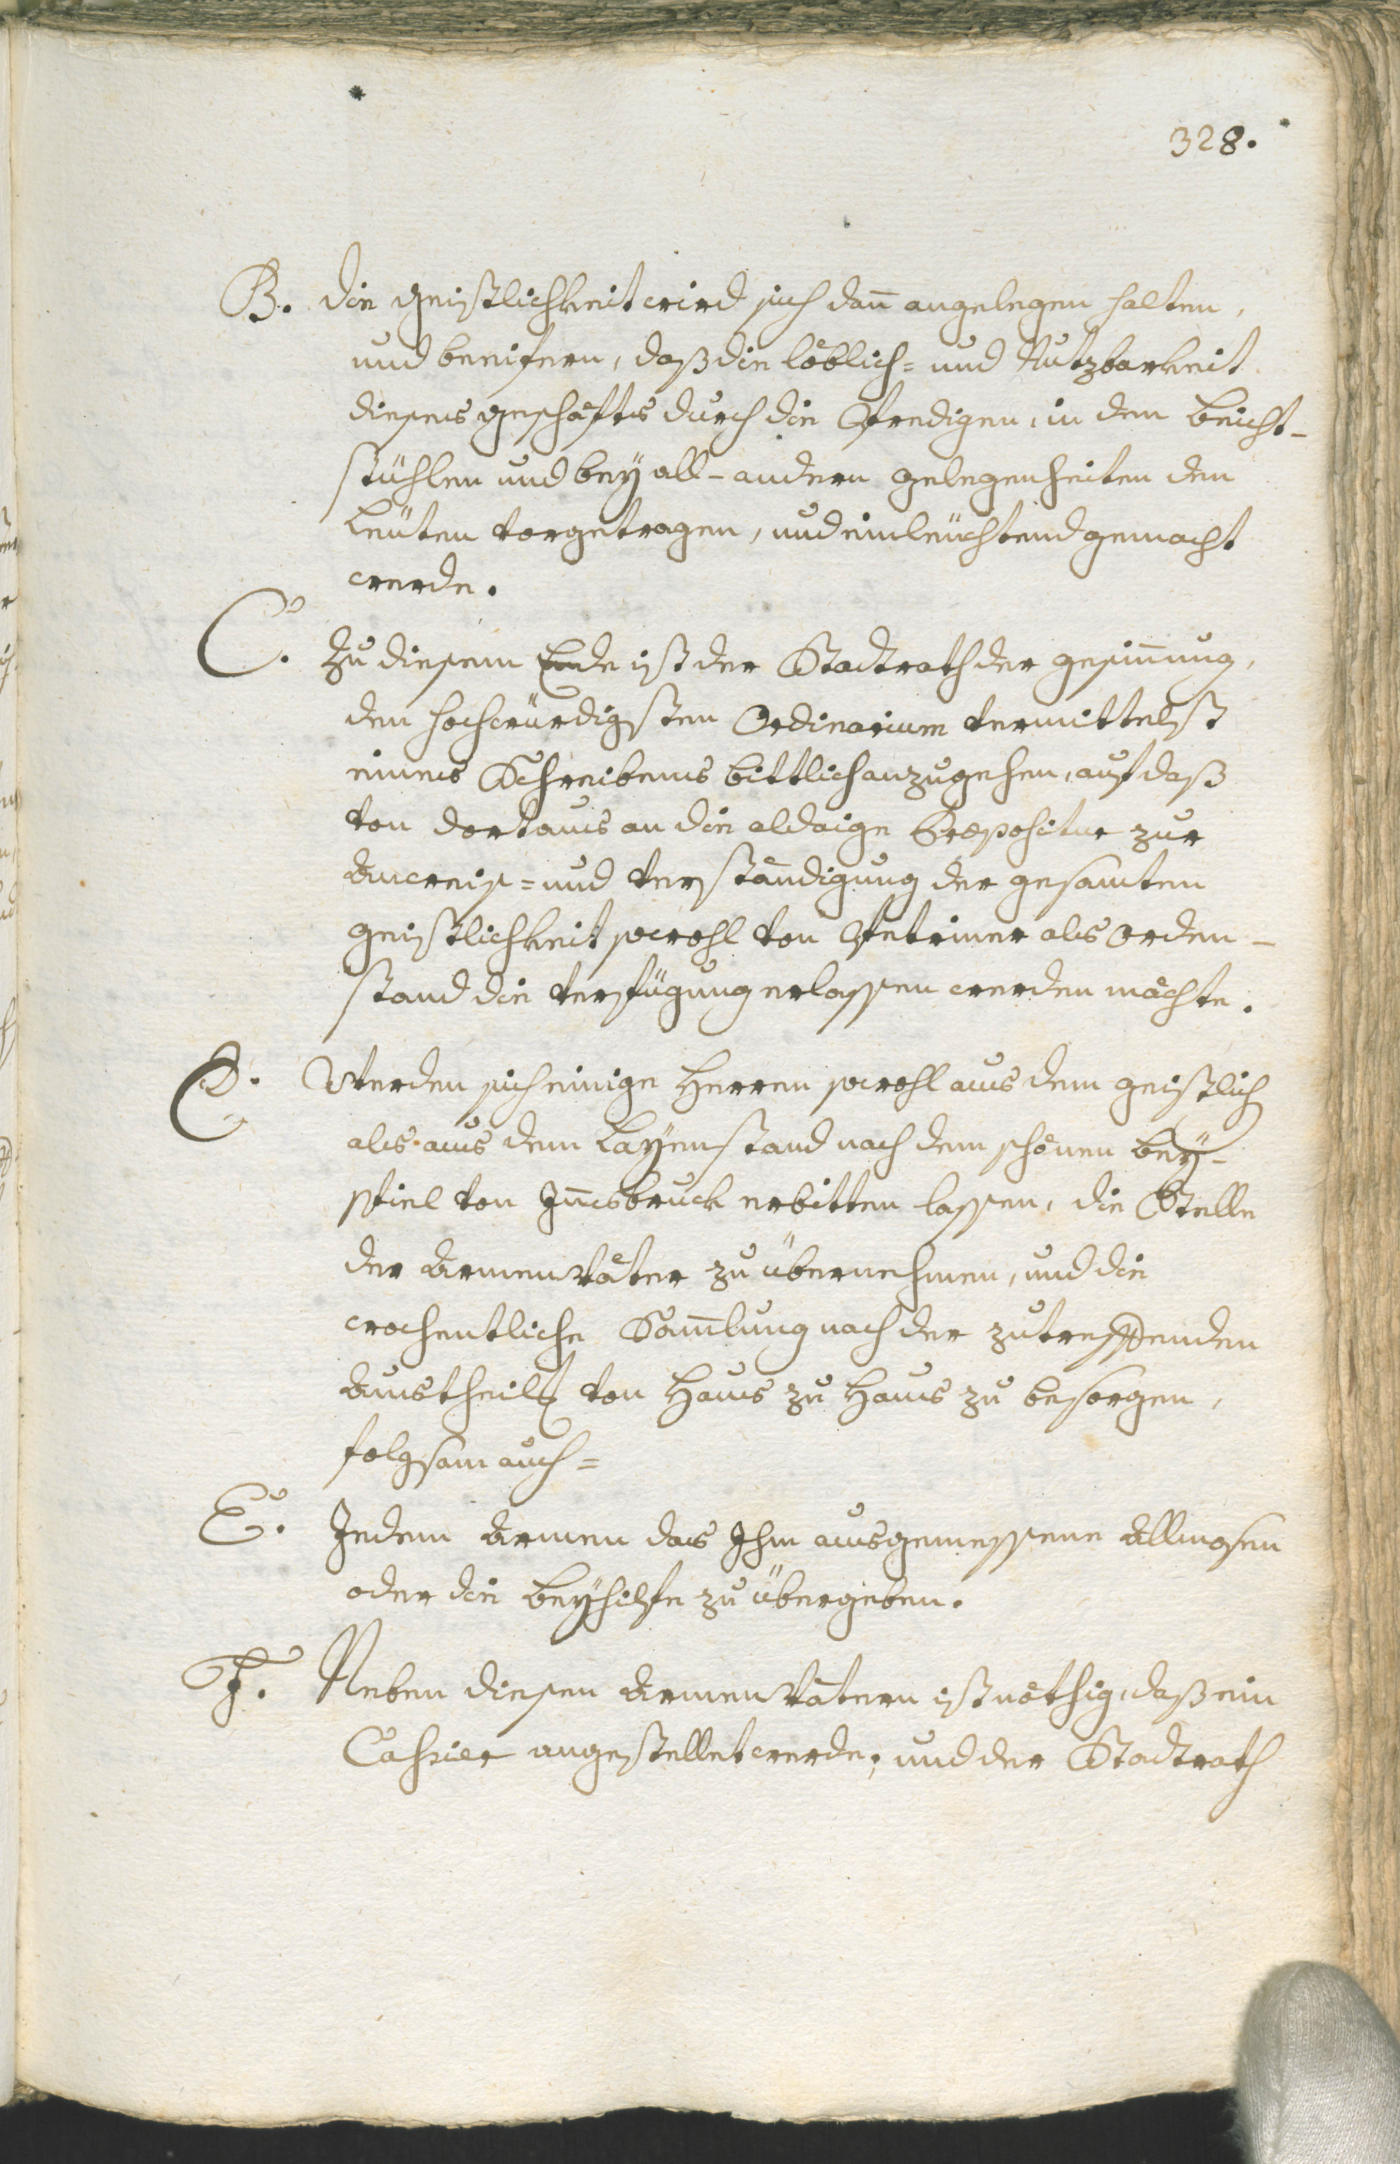 328.
B. die Geistlichkeit wird sich dañ angelegen halten,
und beeifern, daß die löblich= und Nutzbarkeit
dieses Geschäfts durch die Predigen, in den Beicht-
stühlen und bey all-andern Gelegenheiten den
Leüten vorgetragen, und einleüchtend gemacht
werde.
C. Zu diesem Ende ist der Stadtrath der Gesiñung,
den hochwürdigsten Ordinarium vermittelst
eines Schreibens bittlich anzugehen, auf daß
von dortaus an die aldaige Præpositur zur
Anweis= und Verständigung der gesamten
Geistlichkeit sowohl von Petriner als Orden-
stand die Verfügung erlassen werden möchte.
D. Werden sich einige Herren sowohl aus dem Geistlich
als aus dem Layenstand nach dem schönen Bey-
spiel von Iñsbruck erbitten lassen, die Stelle
der Armenväter zu übernehmen, und die
wochentliche Samlung nach der zutreffenden
Austheilg von Haus zu Haus zu besorgen,
folgsam auch=
E. Jedem Armen das Ihm ausgemessene Allmosen
oder die Beyhilfe zu übergeben.
F. Neben diesen Armen Vätern ist nöthig, daß ein
Cassier angestellet werde; und der Stadtrath